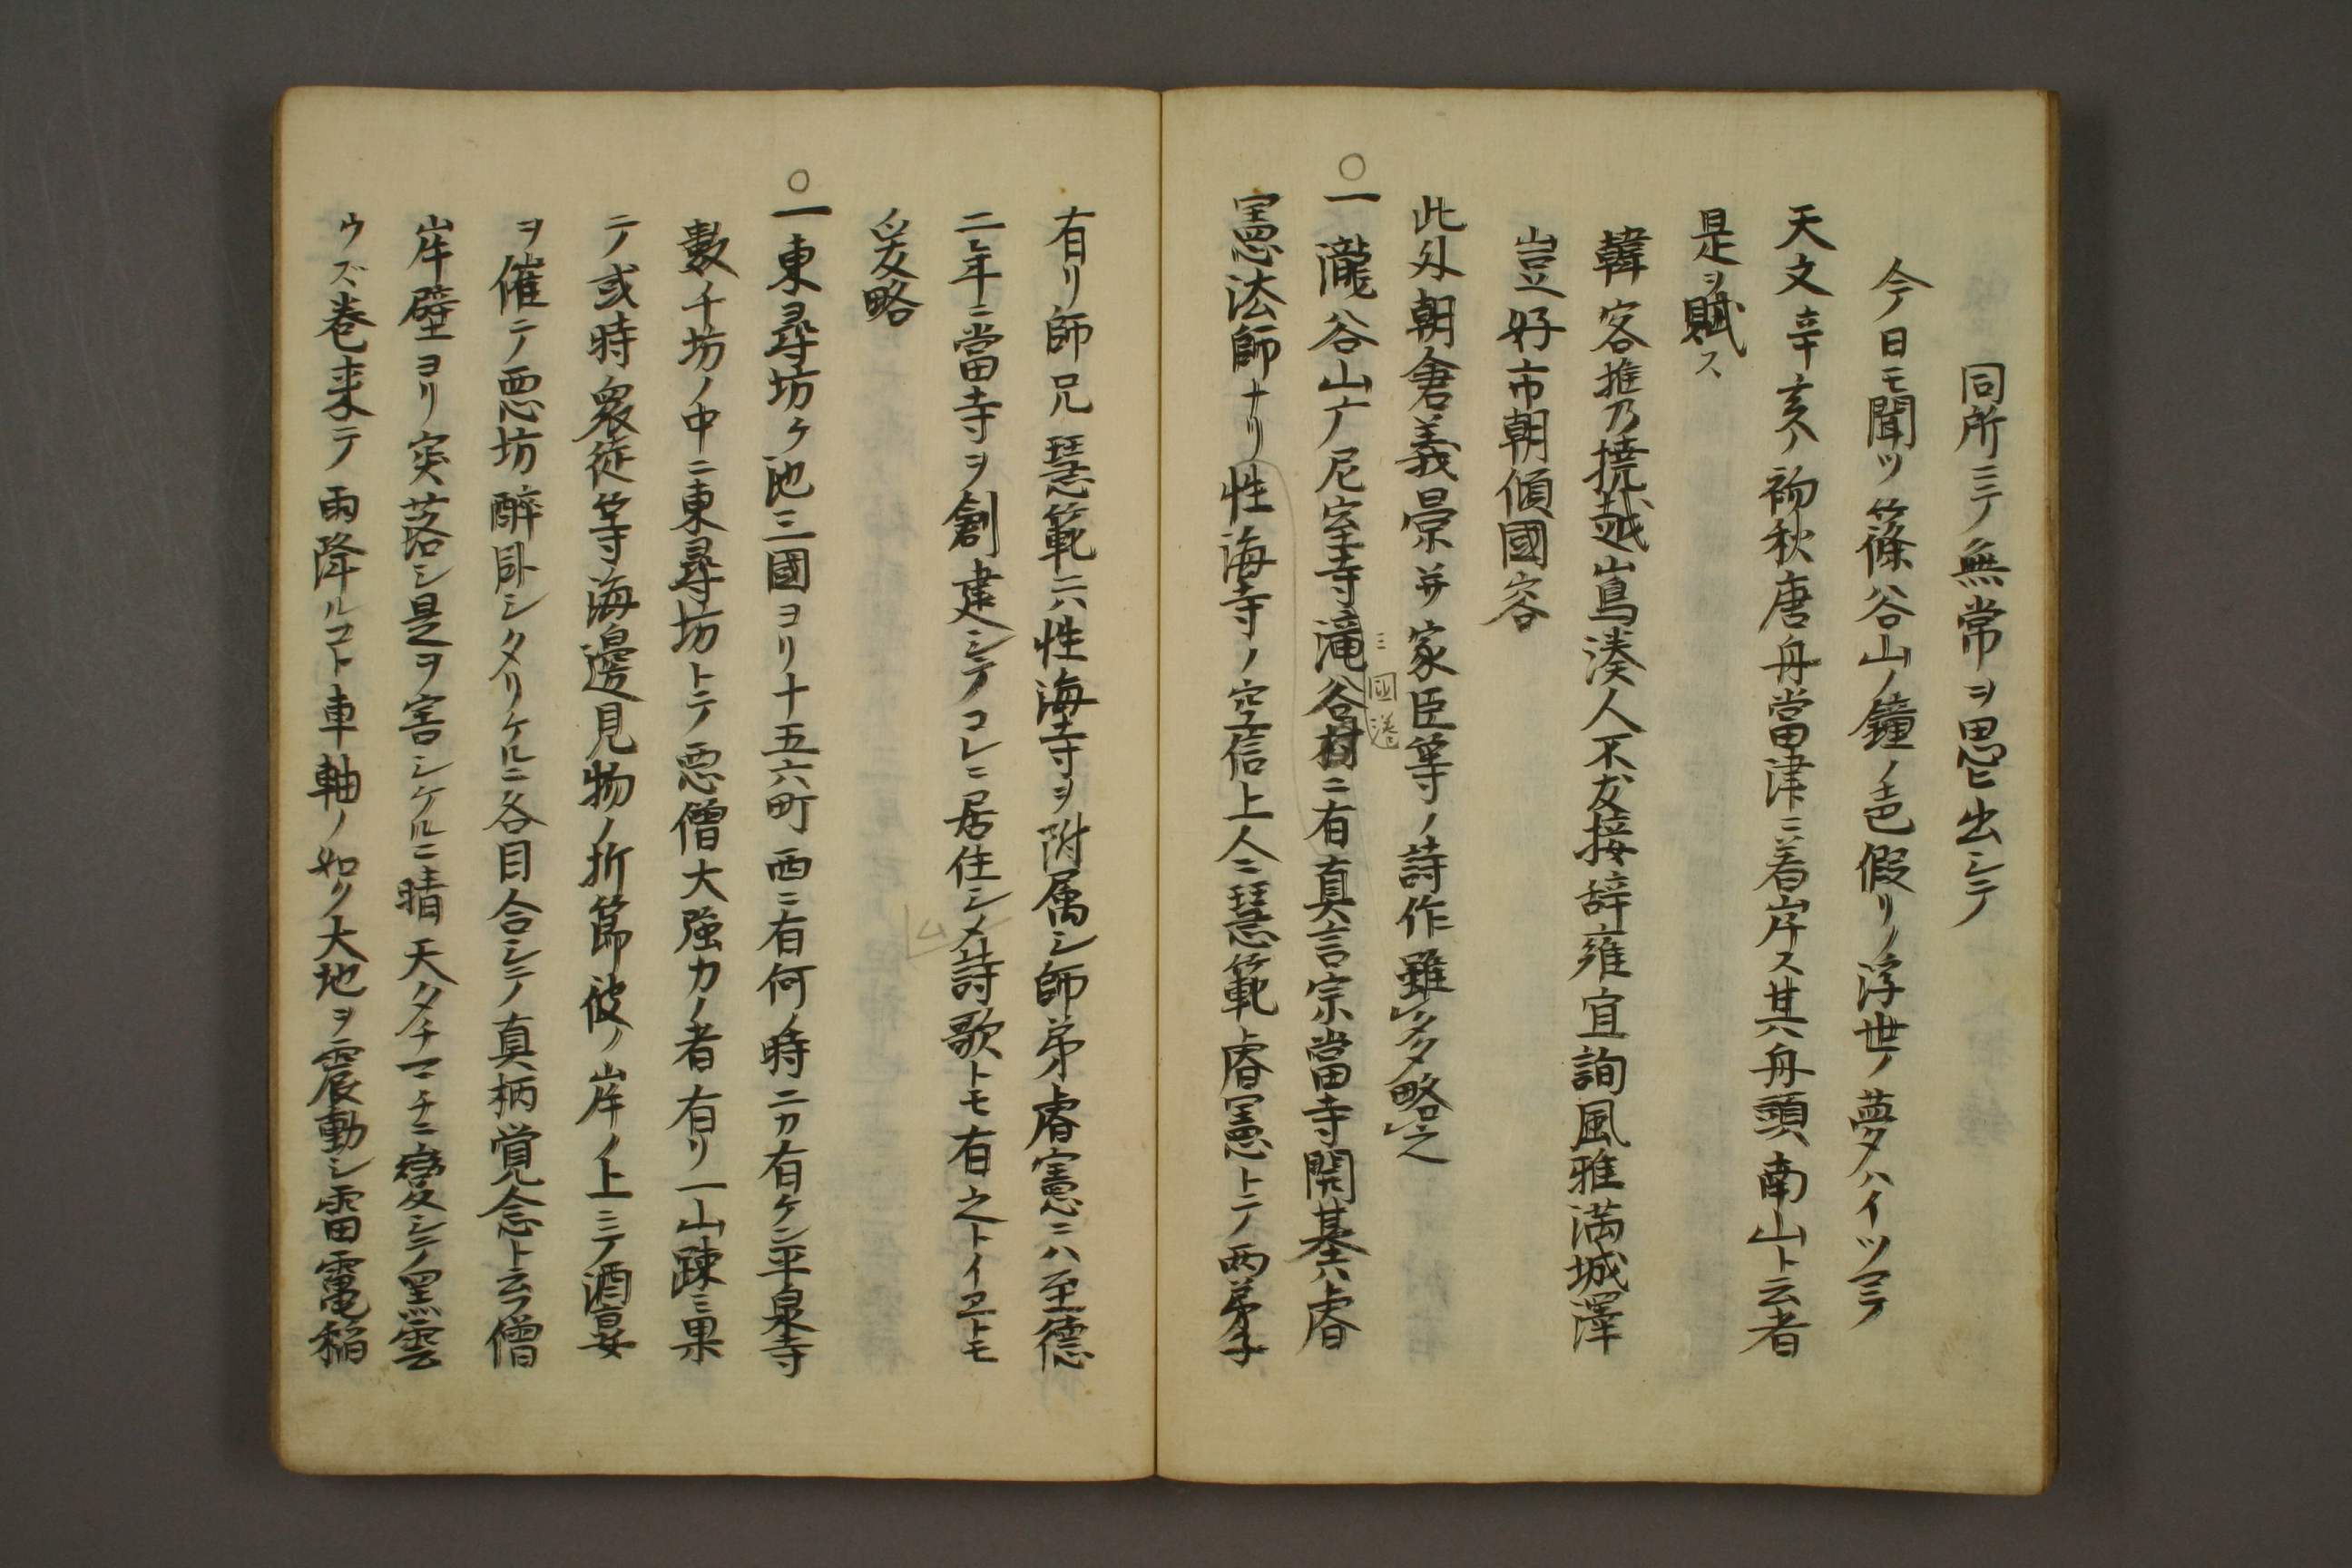 同所ニテ無常ヲ思ヒ出シテ
今日モ聞ツ篠谷山ノ鐘ノ声假リノ浮世ノ夢ハイツマテ
天文辛亥ノ初秋唐舟當津ニ着岸ス其舟頭南山ト云者
是ヲ賦ス
韓客推乃撓越嶌湊人不友接辞雍宜詢風雅満城澤
豈好市朝傾國容
此外朝倉義景并家臣等ノ詩作雖多略之
一瀧谷山广尼室寺滝谷村ニ有真言宗當寺開基ハ睿
三國湊
憲法師ナリ性海寺ノ空信上人ニ慧範睿憲トテ両弟子
有リ師兄慧範ニハ性海寺ヲ附属シ師弟睿憲ニハ至德
二年ニ當寺ヲ創建シテコレニ居住シメ詩歌トモ有之トイヱトモ
爰略
一東尋坊ケ池三國ヨリ十五六町西ニ有何ノ時ニカ有ケン平泉寺
數千坊ノ中ニ東尋坊トテ悪僧大強力ノ者有リ一山疎ミ果
テノ或時衆徒等海邊見物ノ折節彼ノ岸ノ上ニテ酒宴
ヲ催テ悪坊醉臥シタリケルニ各目合シテ真柄覚念ト云フ僧
岸壁ヨリ突落シ是ヲ害シケルニ晴天タチマチニ変シテ黒雲
ウズ巻来テ雨降ルコト車軸ノ如ク大地ヲ震動シ雷電稲